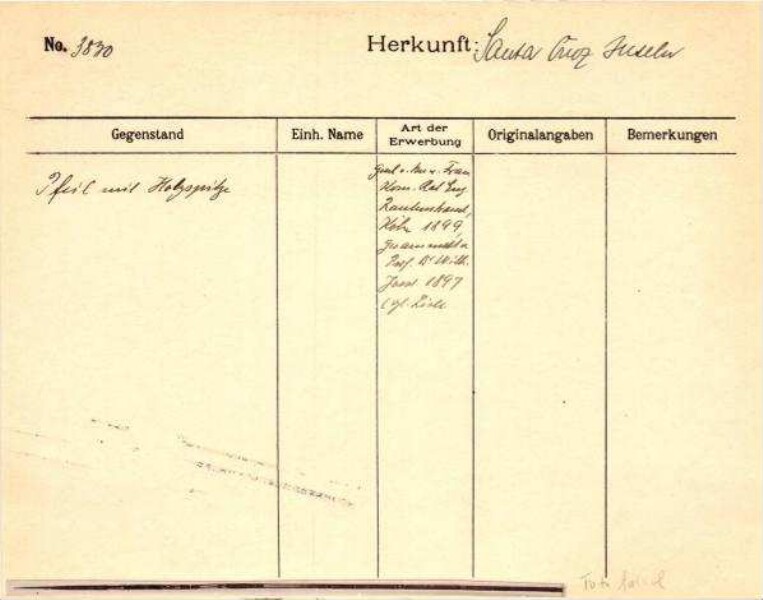 No. 3830
Herkunft: Santa Cruz Inseln
Gegenstand
Einh. Name
Art der Erwerbung
Originalangaben
Bemerkungen
Pfeil mit Holzspitze
v. Frau
Kom. Rat Eug.
Rautenstrauch,
Köln 1899,
gesammelt v.
Prof. Dr Wilh.
Joest 1897